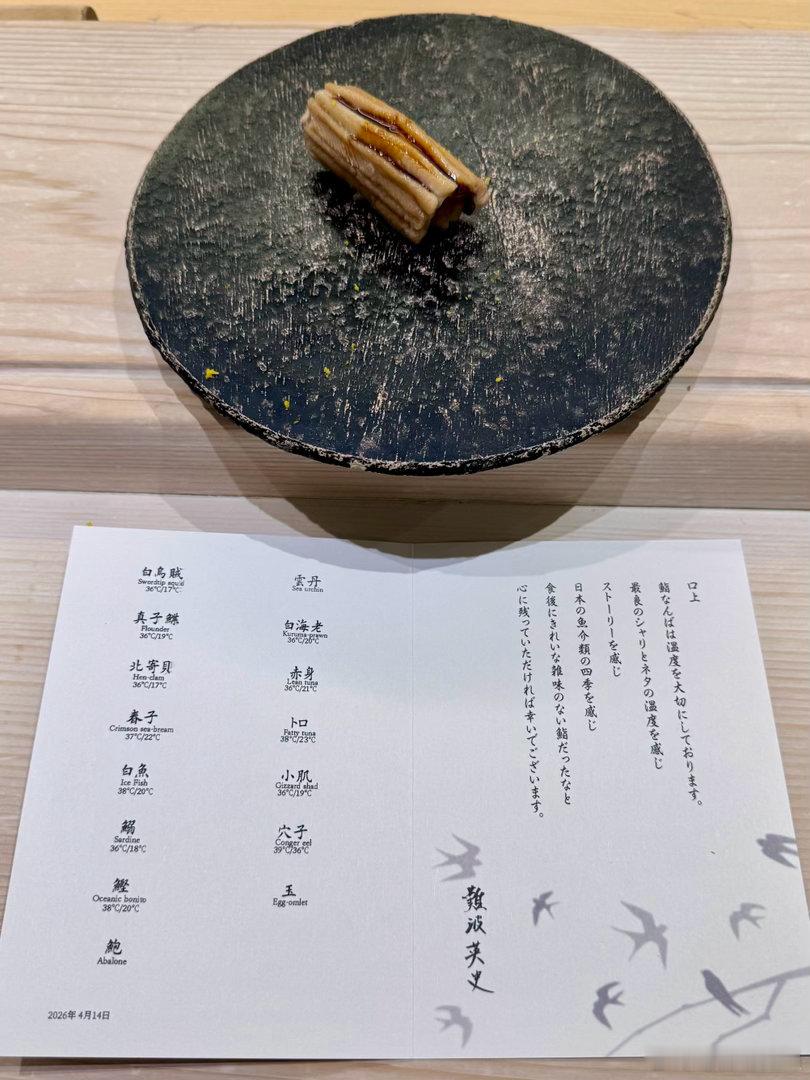 白烏賊
Swordtip squid
36°C/17°C
真子鰈
Flounder
36°C/19°C
北寄貝
Hen-clam
36°C/17°C
春子
Crimson sea-bream
37°C/22°C
白魚
Ice Fish
38°C/20°C
鰯
Sardine
36°C/18°C
鰹
Oceanic bonito
38°C/20°C
鮑
Abalone
2026年 4月14日
雲丹
Sea urchin
白海老
Kuruma-prawn
36°C/20°C
赤身
Lean tuna
36°C/21°C
トロ
Fatty tuna
38°C/23°C
小肌
Gizzard shad
36°C/19°C
穴子
Conger eel
39°C/36°C
玉
Egg-omlet
口上
鮨なんばは温度を大切にしております。
最良のシャリとネタの温度を感じ
ストーリーを感じ
日本の魚介類の四季を感じ
食後にきれいな雑味のない鮨だったなと
心に残っていただければ幸いでございます。
難波英史